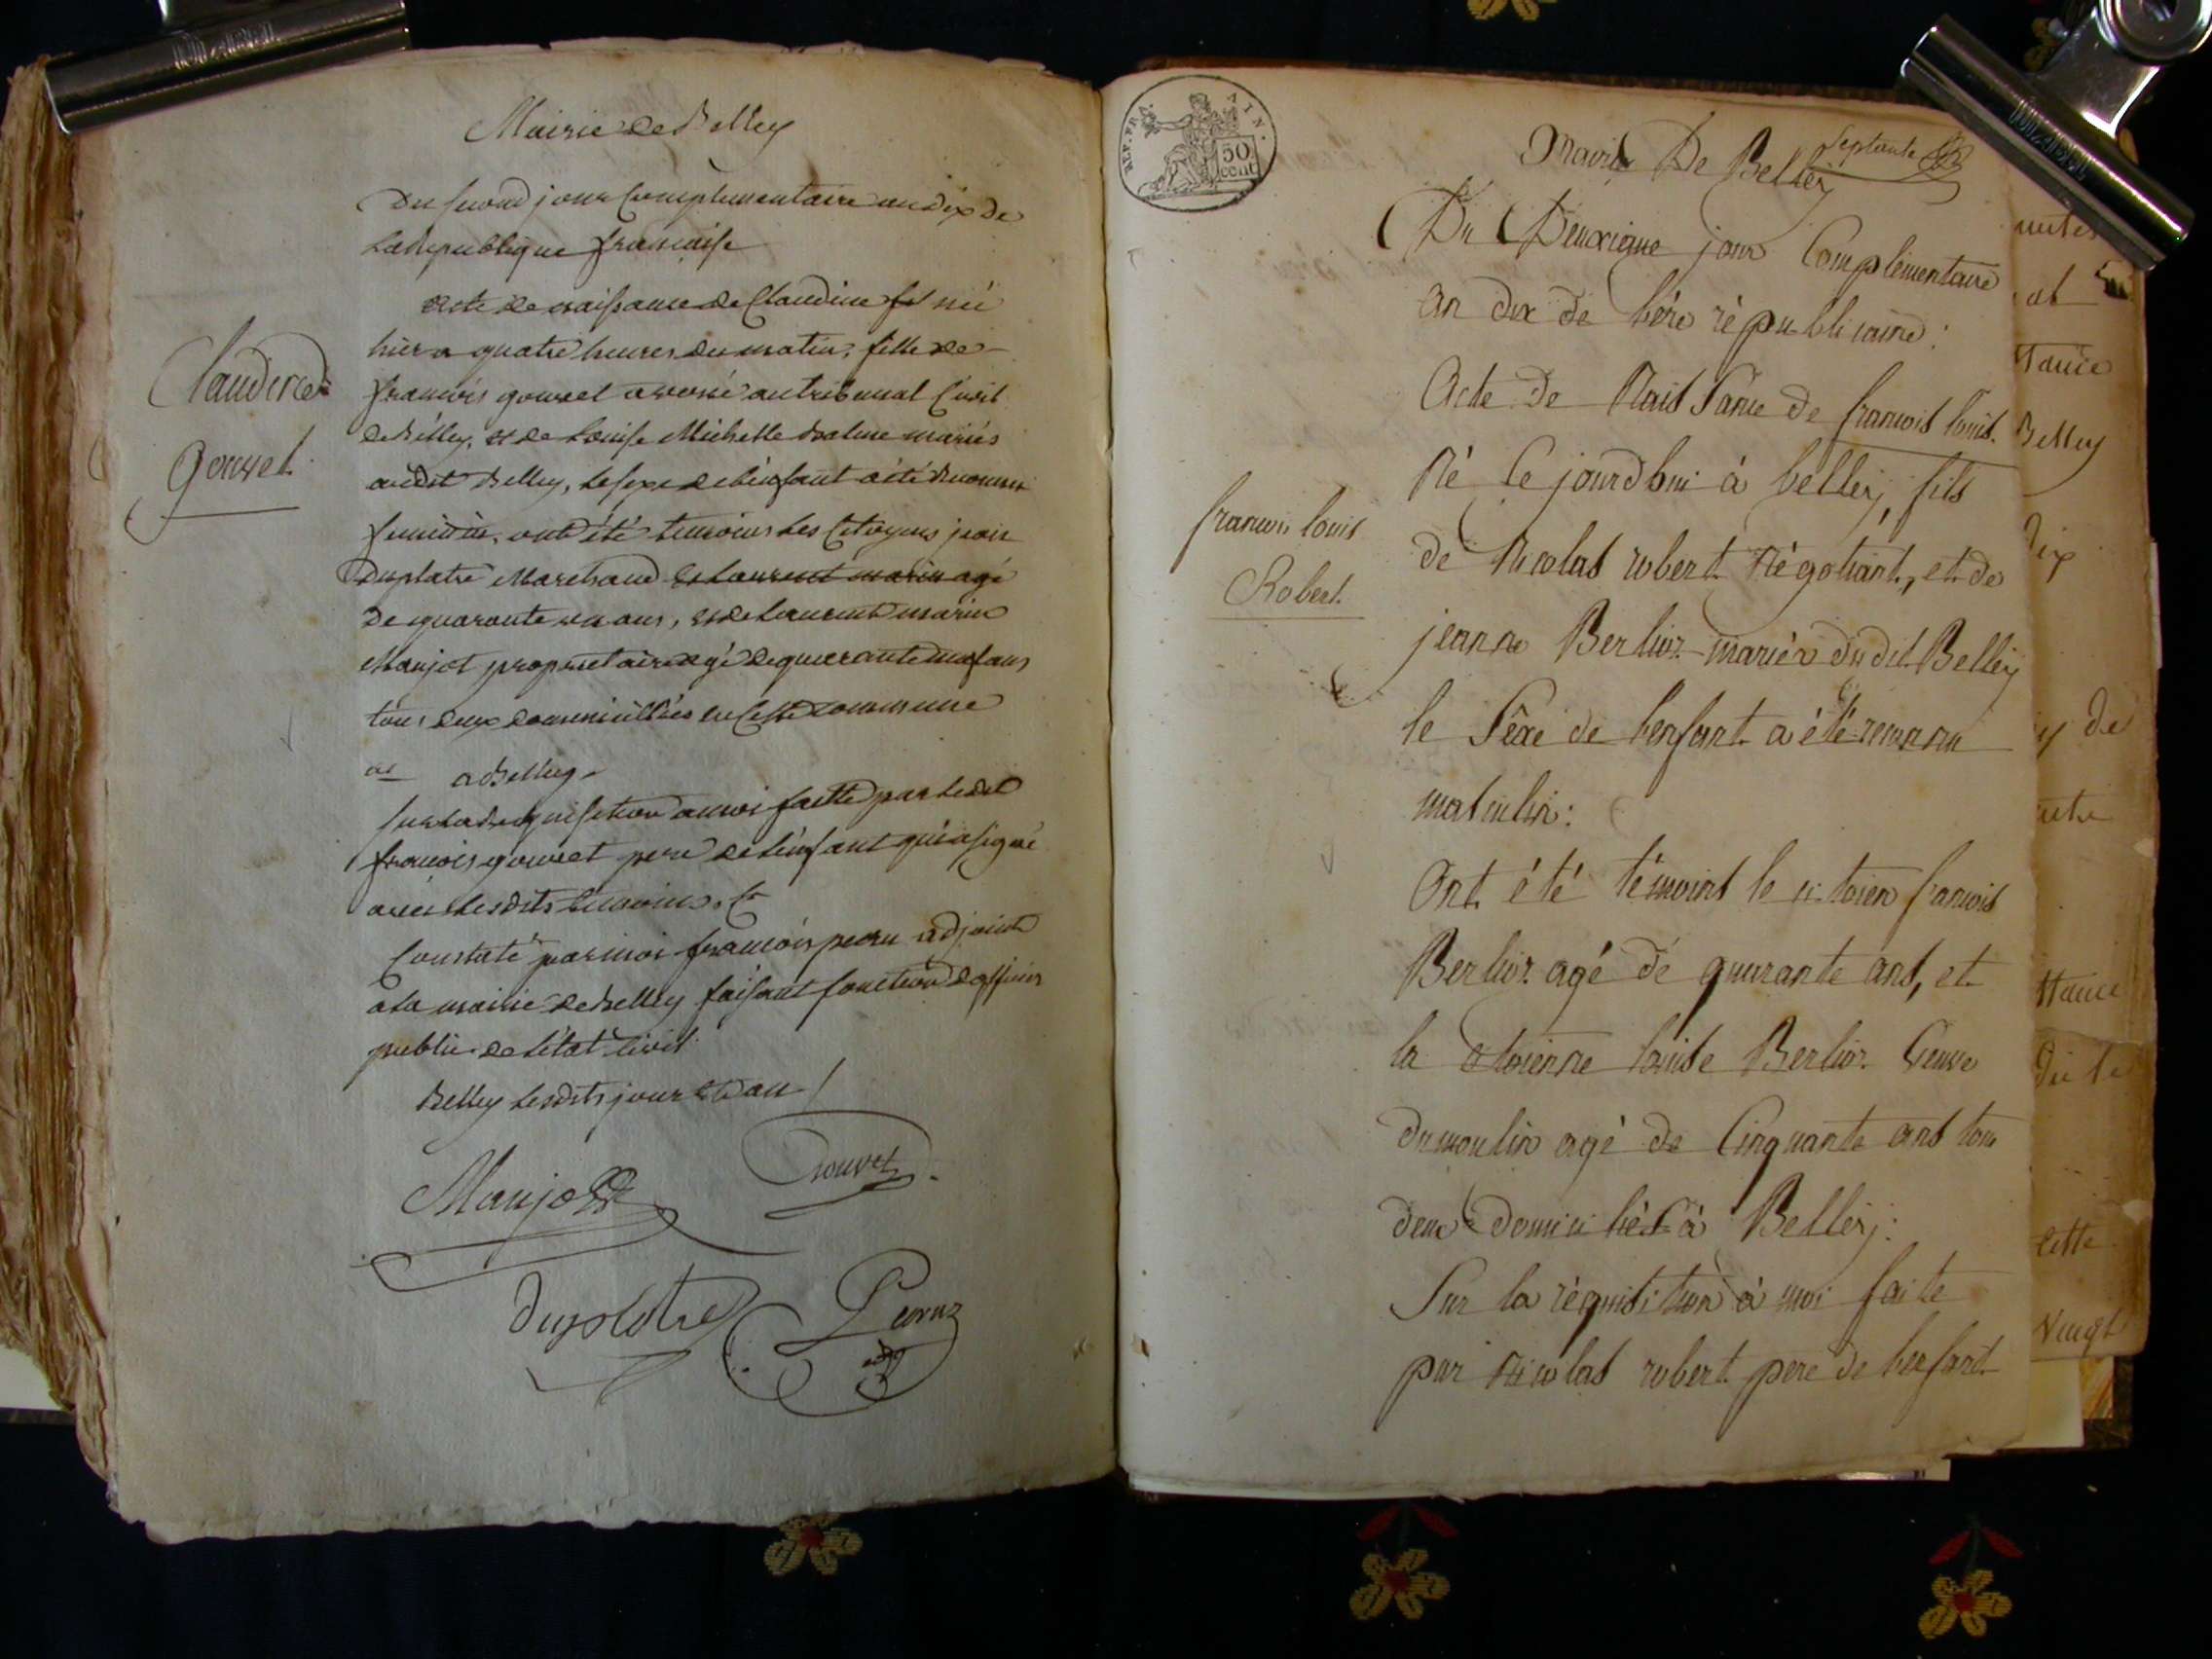 Mairie de Belley
Du second jour Complementaire an dix de
La Republique française
acte de naissance de Claudine née
hier a quatre heures du matin, fille de
françois gouvet avoué au tribunal Civil
de Belley, et de Louise Michelle mariés
audit Belley, le sexe de l'enfant a été reconnu
feminin. ont été temoins les Citoyens jean
Duplatre Marchand et Laurent marin agé
de quarante un ans, et de Laurent marin
Manjot proprietaire agé de quarante ans
tous deux domiciliés en Cette commune
a Belley
sur la requisition a moi faitte par ledit
françois gouvet pere de l'enfant qui a signé
avec lesdits temoins.
Constaté par moi françois adjoint
a la mairie de Belley faisant fonction d'officier
public de l'état civil
Belley lesdits jour et an
Claudine
gouvet
Manjot
Gouvet
duplatre
REP. FRA.
AIN.
50
cent
Septante
Mairie De Belley
Du Deuxieme jour Complémentaire
an dix de l'ére républicaine:
Acte de Naissance de francois louis.
né Ce jourdhui à belley, fils
de Nicolas robert Négotiant, et de
jeanne Berlioz mariés dudit Belley
le Sêxe de l'enfant a été reconnu
masculin:
Ont été témoins le citoien francois
Berlioz agé de quarante ans, et
la citoienne louise Berlioz Veuve
dumoulin agé de Cinquante ans tous
deux domiciliés à Belley:
Sur la réquisition à moi faite
par Nicolas robert pere de l'enfant
francois louis
Robert.
Belley
dix
y de
cette
vingt